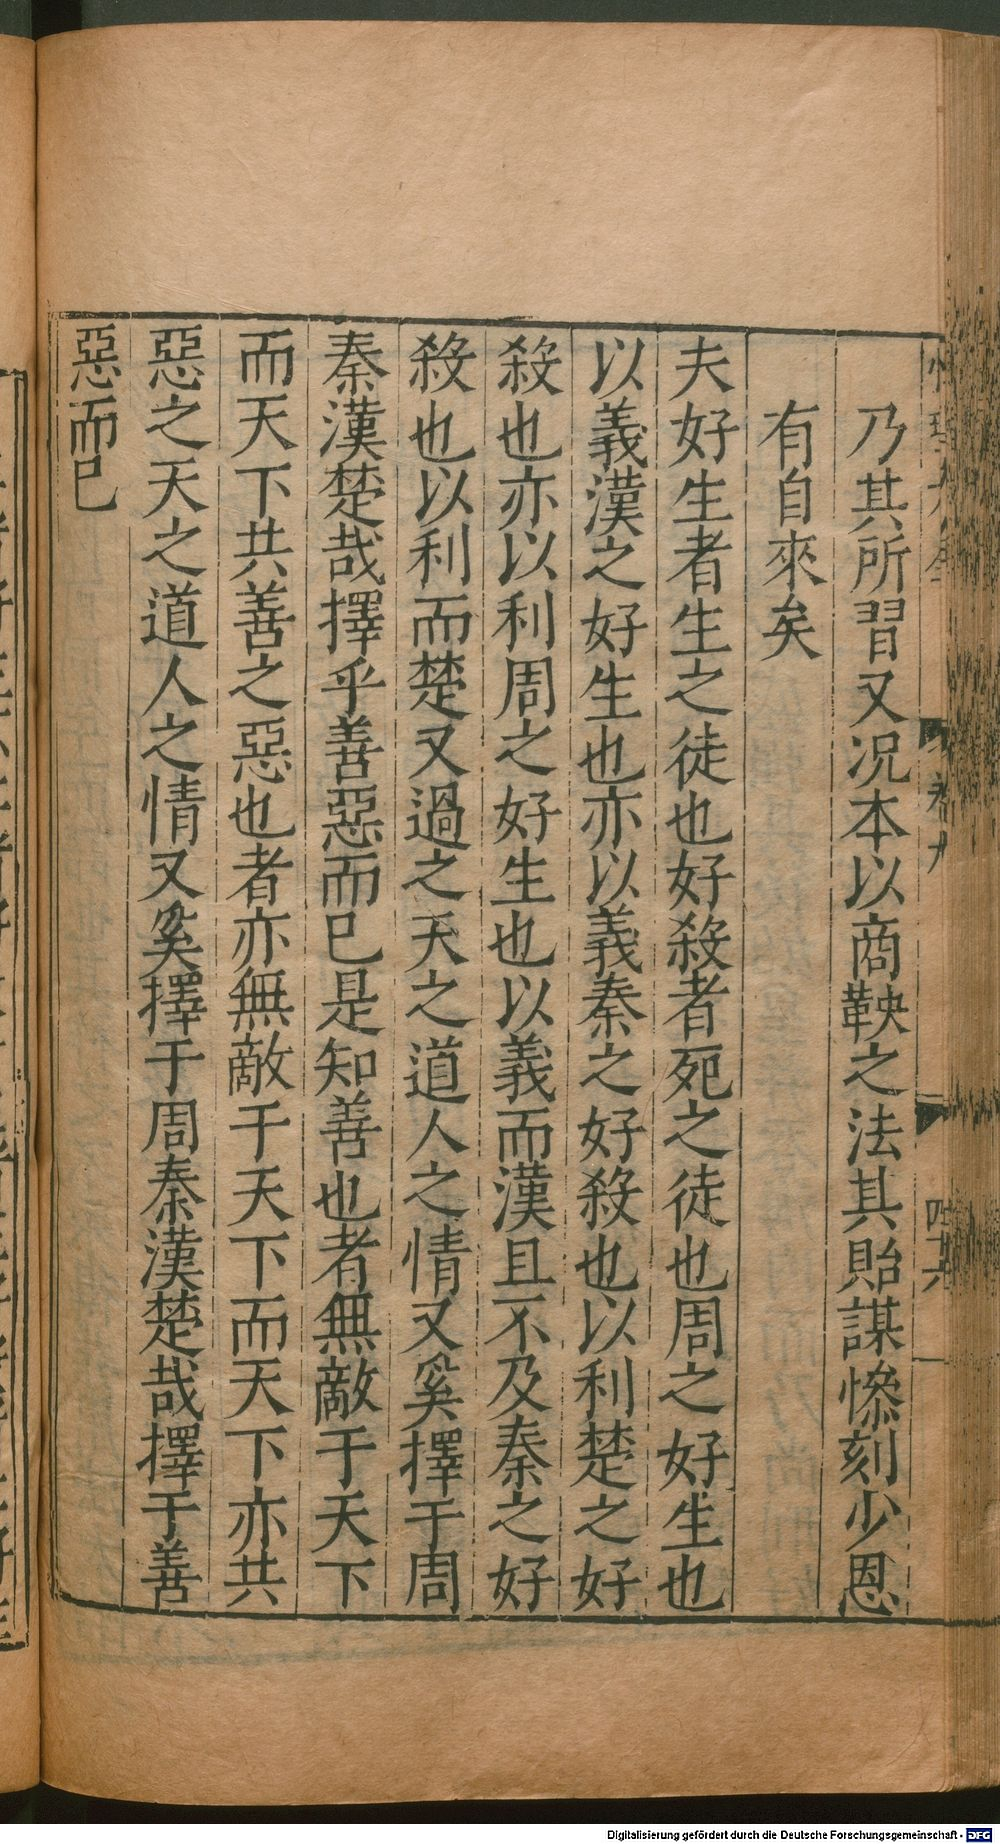 乃其所習又况本以商鞅之法其貽謀慘刻少恩
有自來矣
夫好生者生之徒也好殺者死之徒也周之好生也
以義漢之好生也亦以義秦之好殺也以利楚之好
殺也亦以利周之好生也以義而漢且不及秦之好
殺也以利而楚又過之天之道人之情又奚擇于周
秦漢楚哉擇乎善惡而已是知善也者無敵于天下
而天下共善之惡也者亦無敵于天下而天下亦共
惡之天之道人之情又奚擇于周秦漢楚哉擇于善
惡而已
卷九
四十六
Digitalisierung gefördert durch die Deutsche Forschungsgemeinschaft - DFG